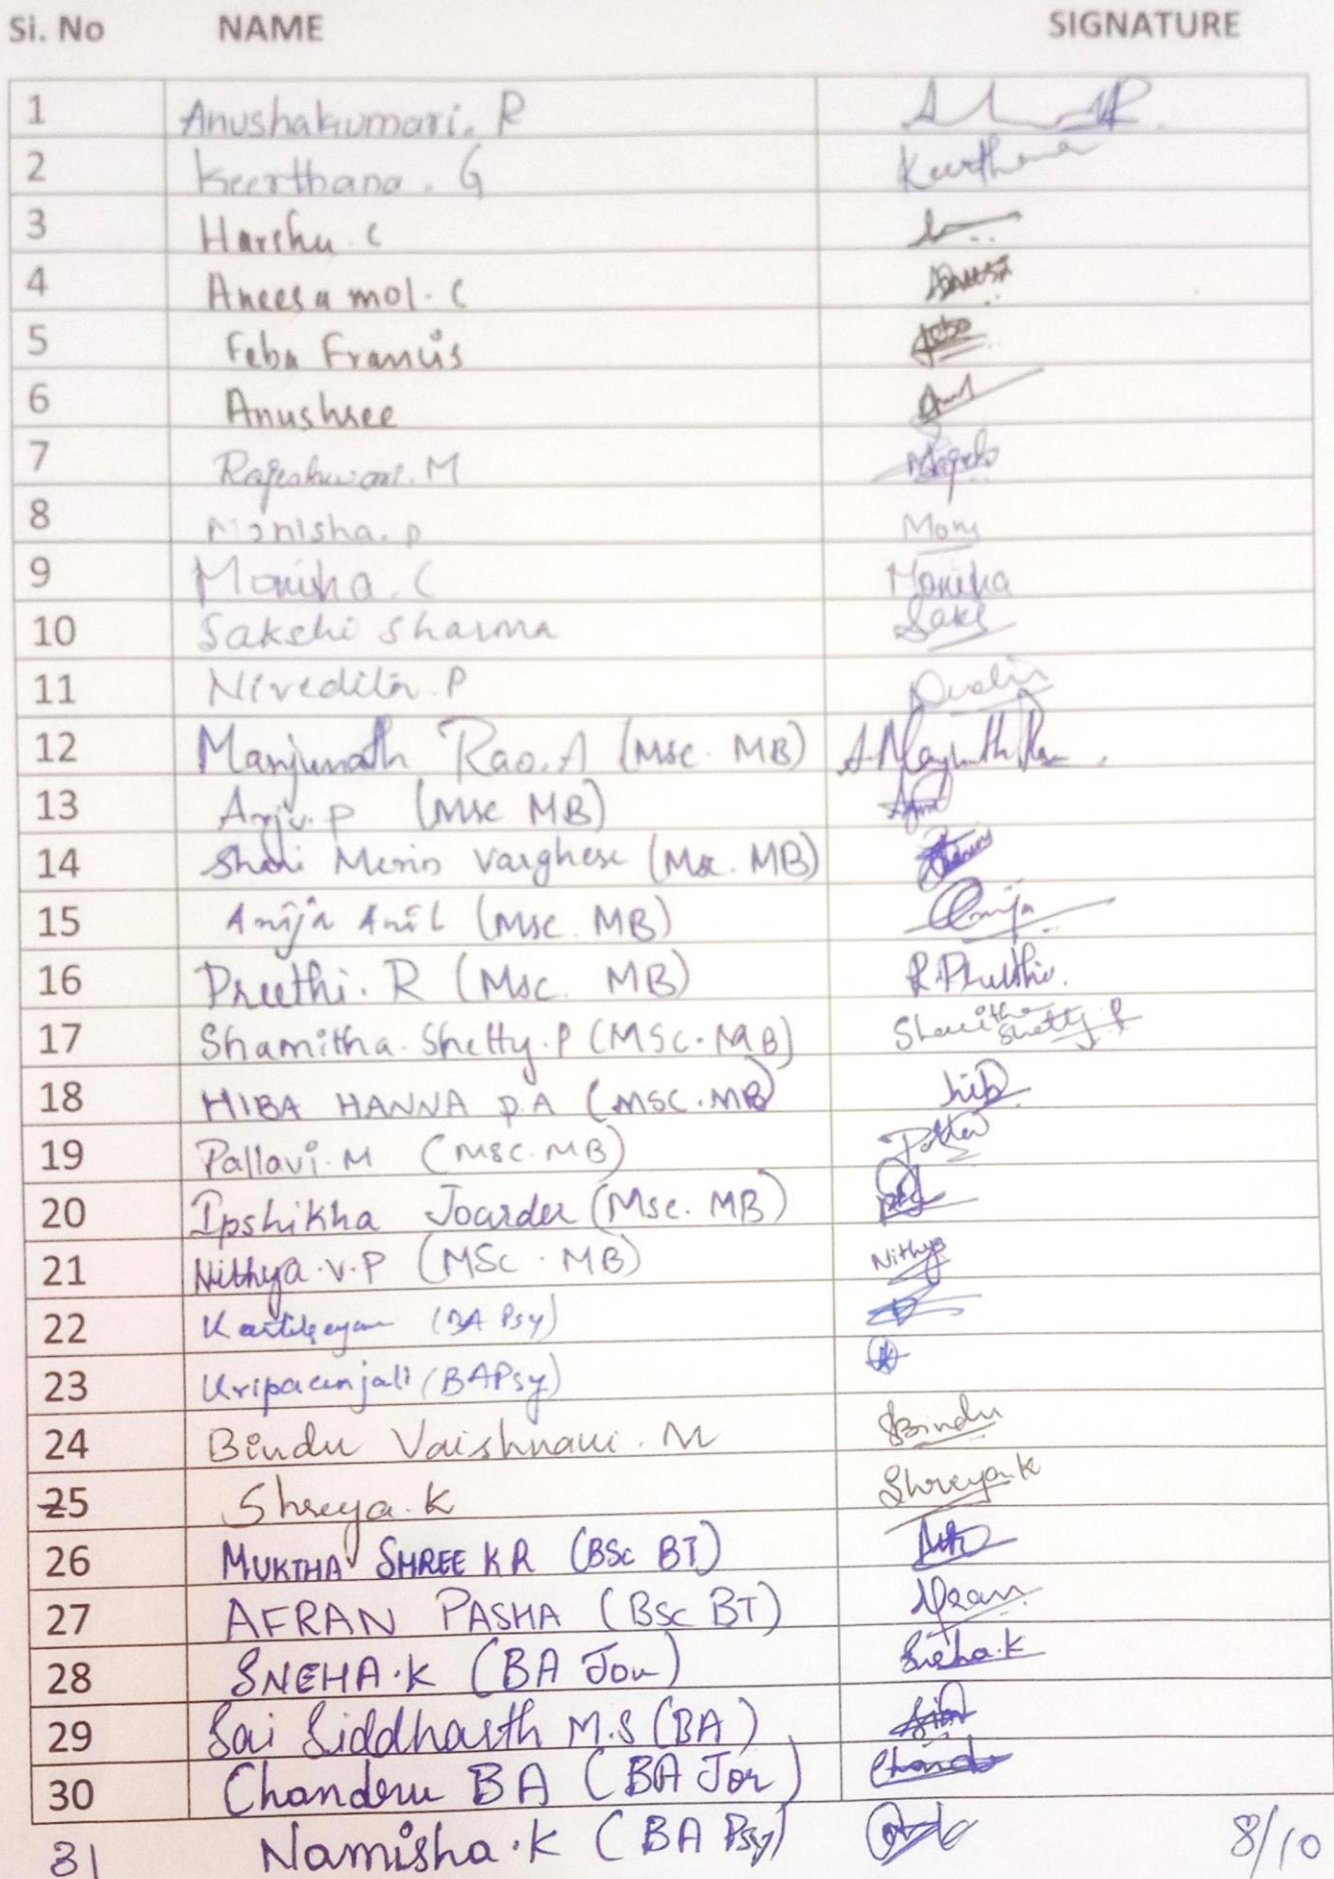 Si. No NAME SIGNATURE
1 Anushakumari. R
2 Keerthana. G Keerthana
3 Harshu. C
4 Aneesa mol. C
5 Feba Francis
6 Anushree
7 Rajeshwari. M
8 Monisha. p Mony
9 Monisha. C Monisha
10 Sakshi Sharma Saks
11 Nivedita. P
12 Manjunath Rao. A (Msc. MB) A. Manjunath Rao.
13 Anju. P (Msc MB)
14 Merin Varghese (Msc. MB)
15 Anija Anil (Msc. MB) Anija
16 Preethi. R (Msc. MB) R. Preethi.
17 Shamitha. Shetty. P (MSC. MB) Shamitha Shetty. P
18 HIBA HANNA P.A (MSC. MB) hib
19 Pallavi. M (MSC. MB)
20 Ipshikha Joarder (Msc. MB)
21 Nithya. V. P (MSc. MB) Nithya
22 Kartikeyan (BA Psy)
23 Kripaanjali (BAPsy)
24 Bindu Vaishnavi. M Bindu
25 Shreya. K Shreya. K
26 MUKTHA SHREE K R (BSc BT)
27 AFRAN PASHA (BSc BT) Afran
28 SNEHA. K (BA Jou) Sneha. K
29 Sai Siddharth M.S (BA)
30 Chandru BA (BA Jor) Chand
31 Namisha. K (BA Psy) 8/10